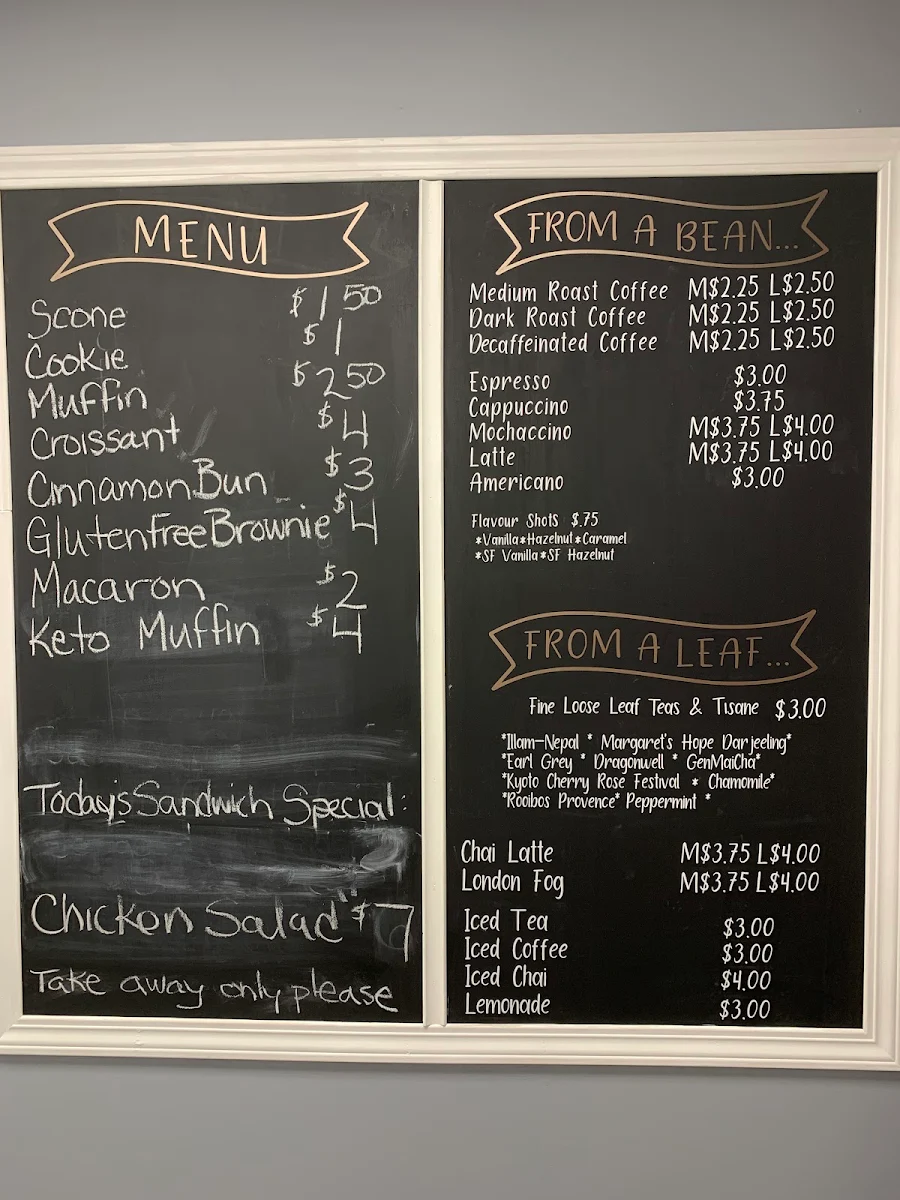 MENU
Scone $1.50
Cookie $1
Muffin $2.50
Croissant $4
Cinnamon Bun $3
Glutenfree Brownie $4
Macaron $2
Keto Muffin $4
Today's Sandwich Special:
Chicken Salad $7
Take away only please
FROM A BEAN...
Medium Roast Coffee M$2.25 L$2.50
Dark Roast Coffee M$2.25 L$2.50
Decaffeinated Coffee M$2.25 L$2.50
Espresso $3.00
Cappuccino $3.75
Mochaccino M$3.75 L$4.00
Latte M$3.75 L$4.00
Americano $3.00
Flavour Shots $.75
*Vanilla*Hazelnut*Caramel
*SF Vanilla*SF Hazelnut
FROM A LEAF...
Fine Loose Leaf Teas & Tisane $3.00
*Illam-Nepal * Margaret's Hope Darjeeling*
*Earl Grey * Dragonwell * GenMaiCha*
*Kyoto Cherry Rose Festival * Chamomile*
*Rooibos Provence* Peppermint *
Chai Latte M$3.75 L$4.00
London Fog M$3.75 L$4.00
Iced Tea $3.00
Iced Coffee $3.00
Iced Chai $4.00
Lemonade $3.00